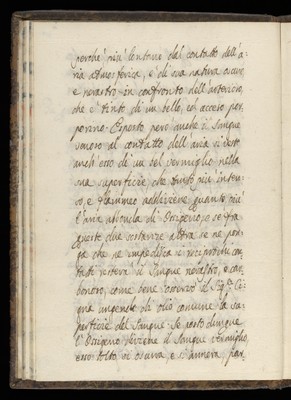 perchè più lontano dal contatto dell'a-
ria atmosferica, è di sua natura oscuro
e nerastro in confronto dell'arterioso,
che è tinto di un bello, ed acceso por-
porino. Esposto però anche il sangue
venoso al contatto dell'aria si veste
anch'esso di un bel vermiglio nella
sua superficie, che tanto più inten-
so, e flammeo addiviene, quanto più
l'aria abbonda di Ossigeno, e se fra
queste due sostanze altra se ne pon-
ga che ne impedisca il reciproco con-
tatto resterà il sangue nerastro, e car-
bonoso, come bene osservò il Sig.
ungendo di olio comune la su-
perficie del Sangue. Se posto dunque
l'Ossigeno diviene il Sangue vermiglio,
esso tolto si oscura, e si annera, par